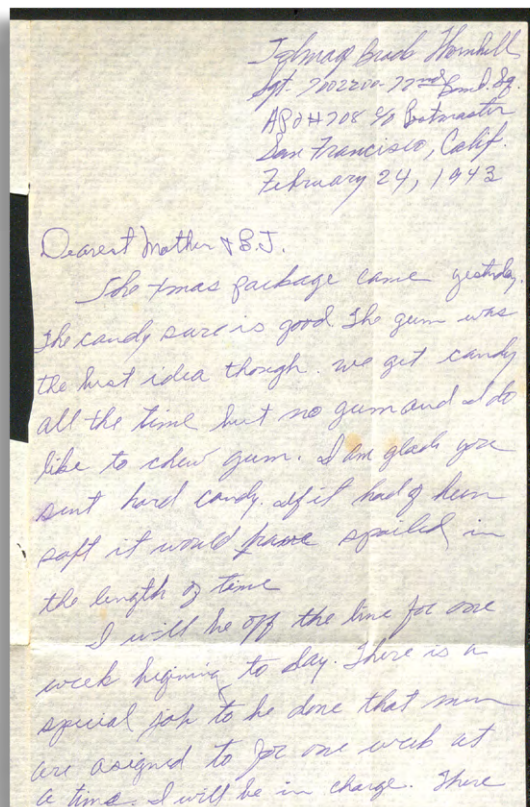 Brack Thornhill
Sgt. 7002200-72nd Bomb. Sq.
APO #708 c/o Postmaster
San Francisco, Calif.
February 24, 1943
Dearest Mother & B.J.
The Xmas package came yesterday.
The candy sure is good. The gum was
the best idea though. we get candy
all the time but no gum and I do
like to chew gum. I am glad you
sent hard candy. If it had of been
soft it would have spoiled in
the length of time
I will be off the line for one
week begining to day. There is a
special job to be done that men
are asigned to for one week at
a time. I will be in charge. There